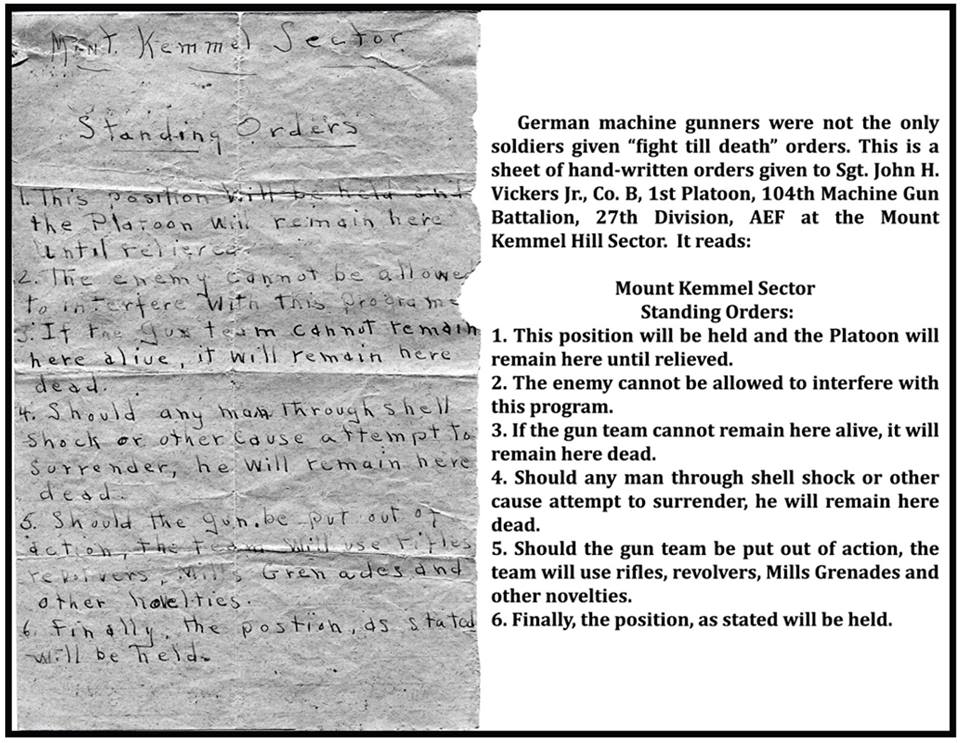 Mount. Kemmel Sector
Standing Orders
1. This position will be held and
the Platoon will remain here
until relieved.
2. The enemy cannot be allowed
to interfere with this programe
3. If the gun team cannot remain
here alive, it will remain here
dead.
4. Should any man through shell
shock or other cause attempt to
surrender, he will remain here
dead.
5. Should the gun.be put out of
action, the team will use rifles
revolvers, Mills Grenades and
other novelties.
6. Finally, the postion, as stated
will be held.
German machine gunners were not the only
soldiers given “fight till death” orders. This is a
sheet of hand-written orders given to Sgt. John H.
Vickers Jr., Co. B, 1st Platoon, 104th Machine Gun
Battalion, 27th Division, AEF at the Mount
Kemmel Hill Sector. It reads:
Mount Kemmel Sector
Standing Orders:
1. This position will be held and the Platoon will
remain here until relieved.
2. The enemy cannot be allowed to interfere with
this program.
3. If the gun team cannot remain here alive, it will
remain here dead.
4. Should any man through shell shock or other
cause attempt to surrender, he will remain here
dead.
5. Should the gun team be put out of action, the
team will use rifles, revolvers, Mills Grenades and
other novelties.
6. Finally, the position, as stated will be held.